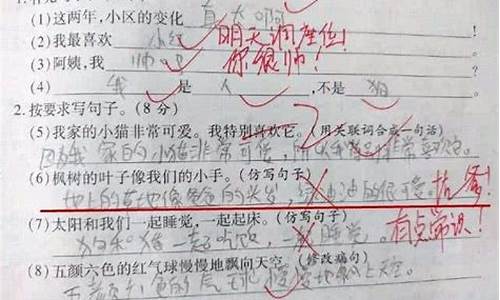 (1)这两年,小区的变化 真大啊
(2)我最喜欢 小红 明天调座位!
(3)阿姨,我 帅吧 你很帅!
(4) 我 是 人 ,不是 狗
2.按要求写句子。(8 分)
(5)我家的小猫非常可爱。我特别喜欢它。(用关联词合成一句话)
因为我家的小猫非常可爱,所以我非常喜欢它。
(6)枫树的叶子像我们的小手。(仿写句子)
地上的草地像爸爸的头发,
(7)太阳和我们一起睡觉,一起起床。(仿写句子) 有点常识!
狗和猪一起吃饭,一起睡觉。
(8)五颜六色的红气球慢慢地飘向天空。(修改病句)
五颜六色的气球慢慢地飘上天空。